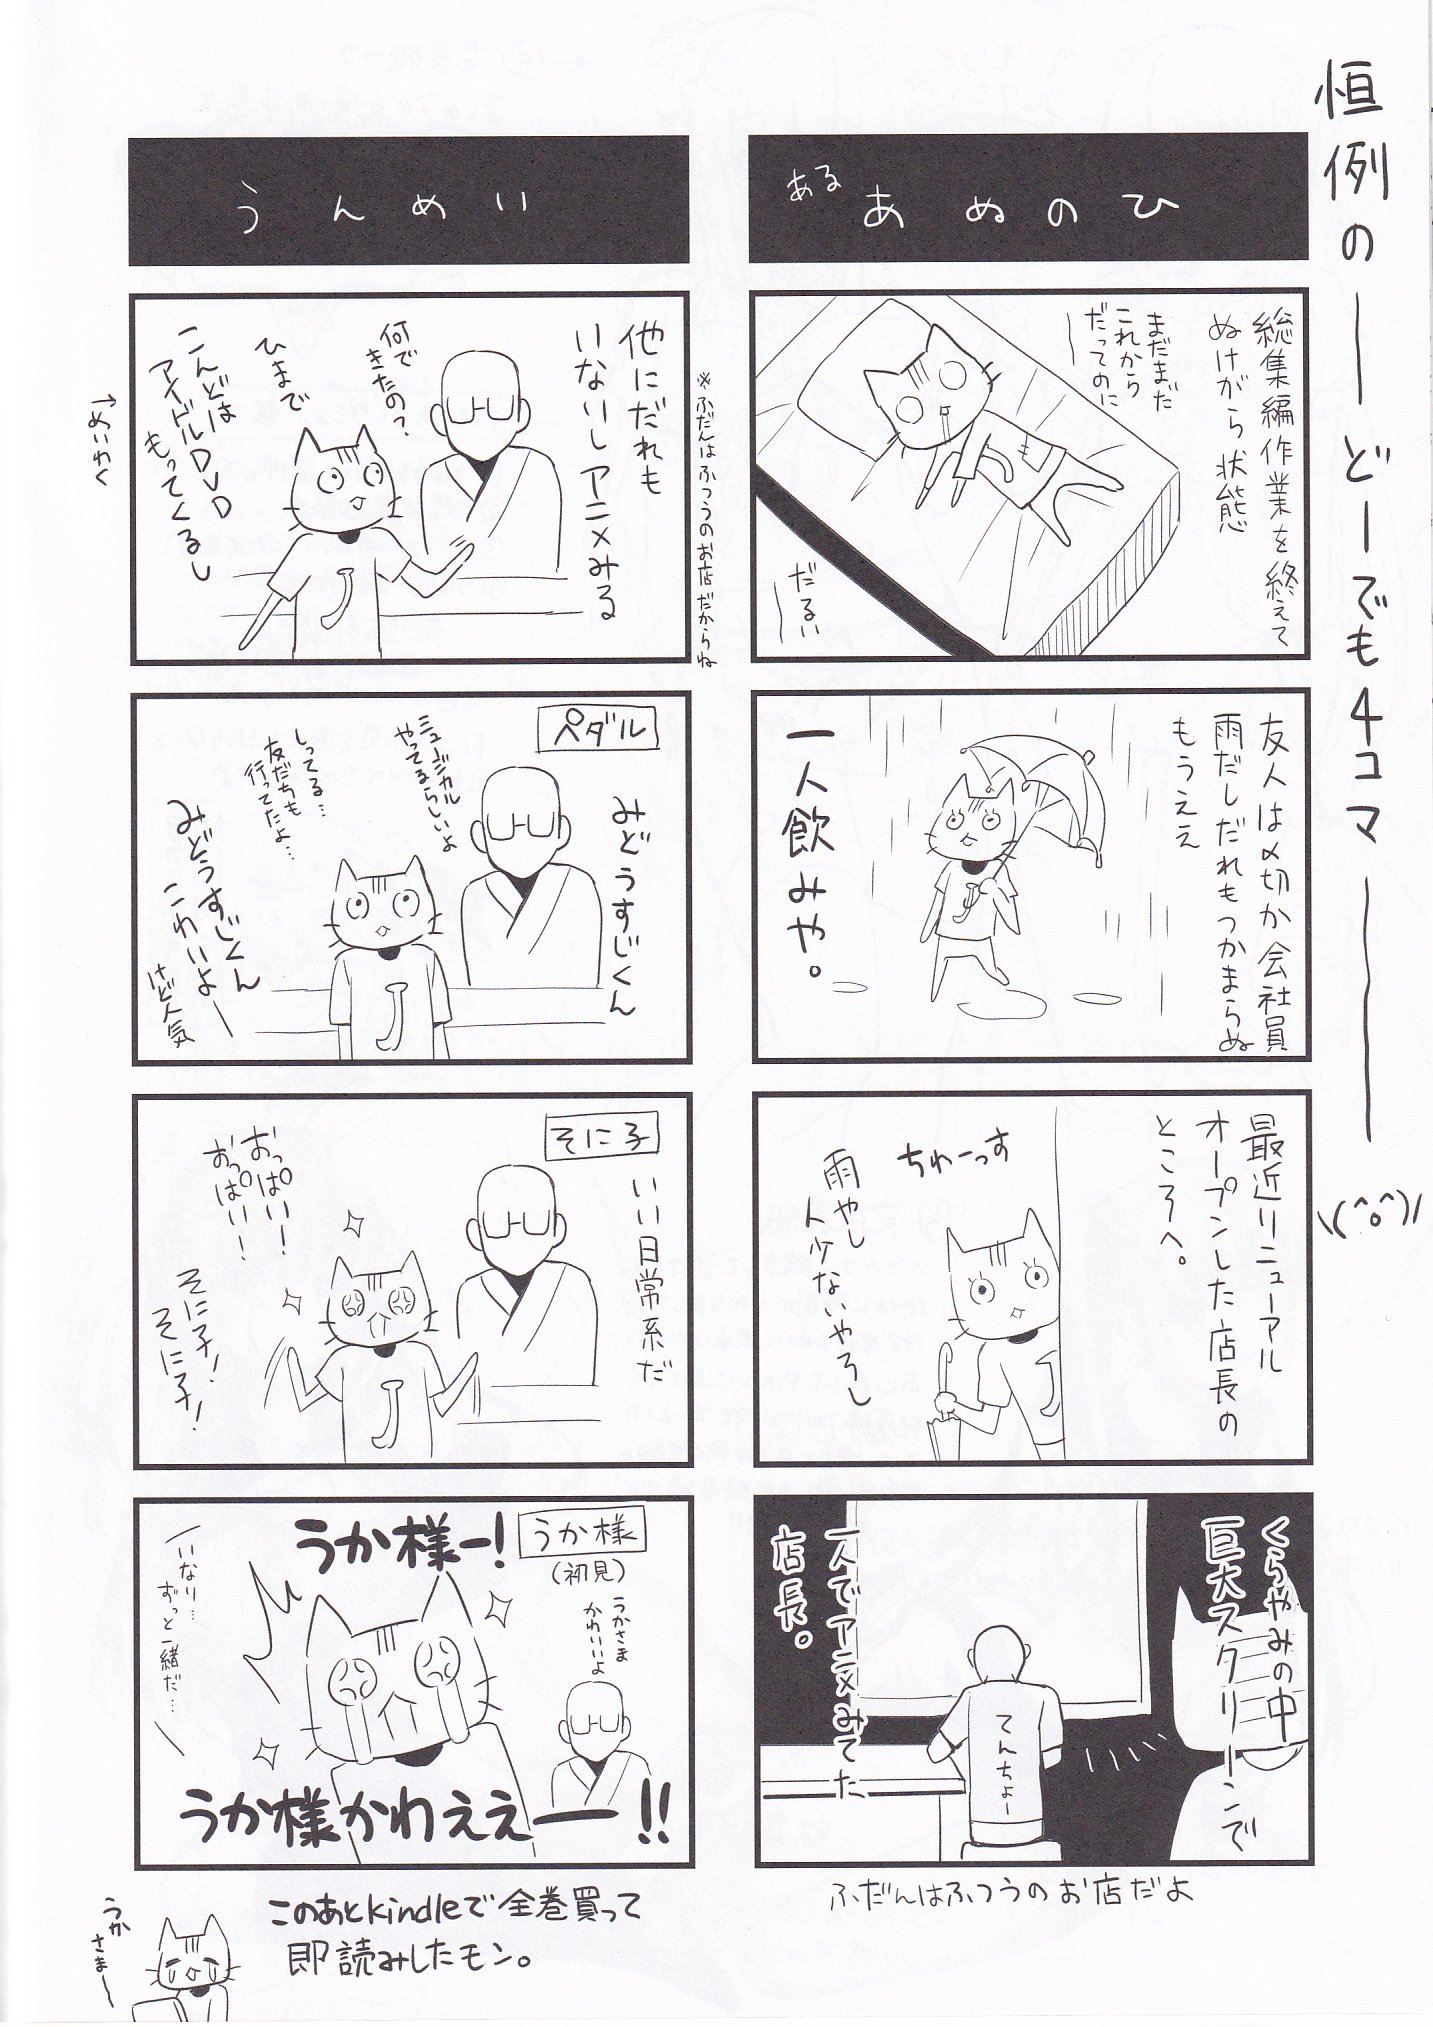 恒例の――どーでも4コマ――――\(^o^)/
ある
あぬのひ
総集編作業を終えて
ぬけがら状態
まだまだ
これから
だってのに
――
だるい
――
友人は〆切か会社員
雨だしだれもつかまらぬ
もうええ
一人飲みや。
最近リニューアル
オープンした店長の
ところへ。
ちわーっす
雨やし
人少ないやろし
くらやみの中
巨大スクリーンで
てんちょー
一人でアニメみてた
店長。
ふだんはふつうのお店だよ
うんめい
※ふだんはふつうのお店だからね
他にだれも
いないしアニメみる
何で
きたの?
ひまで
こんどは
アイドルDVD
もってくるし
→めいわく
ペダル
みどうすじくん
ミュージカル
やってるらしいよ
しってる…
友だちも
行ってたよ…
みどうすじくん
こわいよー
けど人気
そに子
いい日常系だ
おっぱい!
おっぱい!
そに子!
そに子!
うか様
(初見)
うか様ー!
うかさま
かわいいよ
いなり…
ずっと一緒だ…
うか様かわええー!!
このあとkindleで全巻買って
即読みしたモン。
うか
さまー